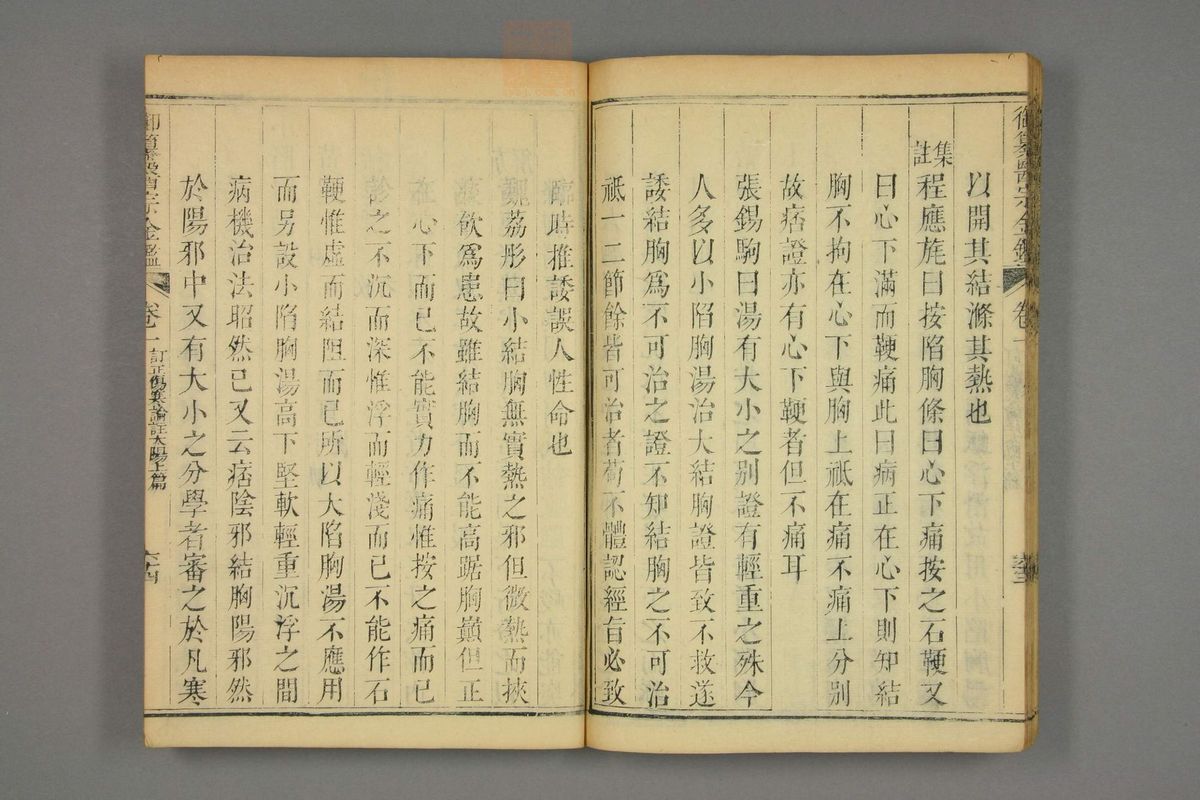 以開其結滌其熱也
集註
程應旄曰按陷胸條曰心下痛按之石鞕又
曰心下滿而鞕痛此曰病正在心下則知結
胸不拘在心下與胸上祇在痛不痛上分別
故痞證亦有心下鞕者但不痛耳
張錫駒曰湯有大小之別證有輕重之殊今
人多以小陷胸湯治大結胸證皆致不救遂
諉結胸爲不可治之證不知結胸之不可治
祗一二節餘皆可治者苟不體認經旨必致
臨時推諉誤人性命也
魏荔彤曰小結胸無實熱之邪但微熱而挾
飲爲患故雖結胸而不能高踞胸巔但正
心下而已不能實力作痛惟按之痛而已
之不沉而深惟浮而輕淺而已不能作石
鞕惟虛而結阻而已所以大陷胸湯不應用
而另設小陷胸湯高下堅軟輕重沉浮之間
病機治法昭然已又云痞陰邪結胸陽邪然
於陽邪中又有大小之分學者審之於凡寒
御纂醫宗金鑑
卷一
訂正傷寒論註太陽上篇
六四